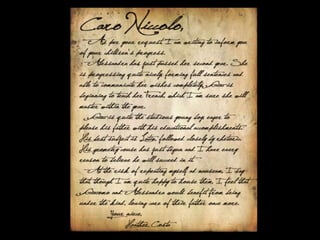 Caro Niccolo,
- As per your request I am writing to inform you
of your children's progress.
- Alessandra has just passed her second year. She
is progressing quite nicely, forming full sentences and
able to communicate her wishes completely.
beginning to teach her French which I am sure she will
master within the year.
is quite the studious young boy eager to
please his father with his educational accomplishments.
His best subject is Latin followed closely by
His just begun but I have every
reason to believe he will succeed in it.
- At the risk of repeating myself at nauseum, I say
that though I am quite happy to house them, I feel that
and Alessandra would benefit from being
under the kind, loving care of their father once more.
Your